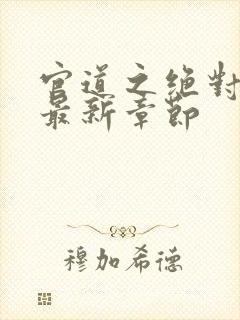 官道之绝對
最新章節
穆加希德